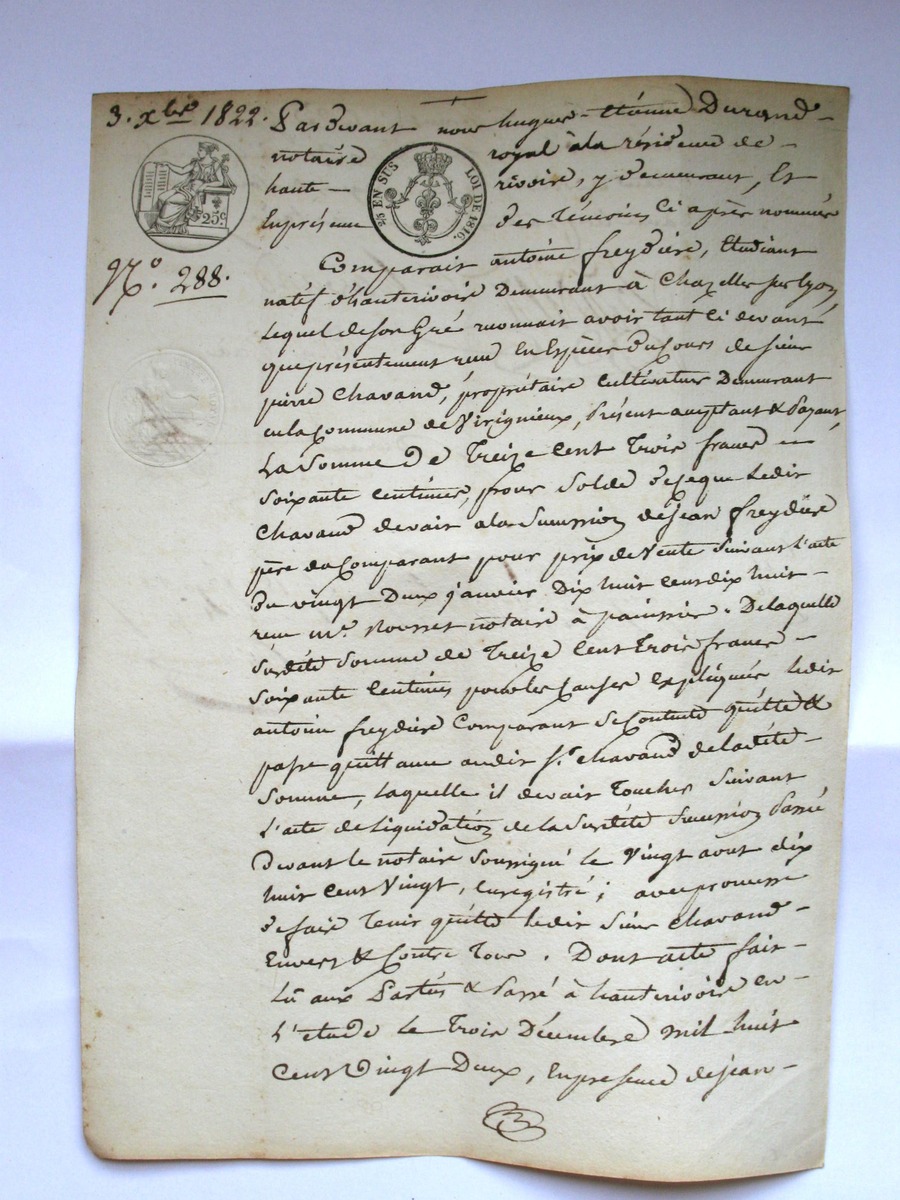 3. xbre 1822.
Pardevant nous hugues-Etienne Durand-
notaire royal à la résidence de-
haute- rivoire, y demeurant, Et
En présence des Témoins Ci après nommés
25c.
25 EN SUS
LOI DE 1816.
No. 288.
Comparait antoine freydière, Etudiant
natif d'hauterivoire Demeurant à Chazelles sur lyon,
Lequel de son Gré reconnait avoir tant Ci devant
que présentement reçu En Espèces du Cours de sieur
pierre Chavand, propriétaire Cultivateur Demeurant
en la Commune de Virignieux, présent acceptant & payant,
La Somme De Treize Cent Trois francs
Soixante Centimes, pour Solde de ce que Ledit
Chavand devait a la Succession de jean freydière
père du Comparant pour prix de Vente Suivant l'acte
du vingt Deux janvier Dix huit Cent dix huit-
reçu me. Rousset notaire à . De laquelle
Susdite Somme de Treize Cent Trois francs-
Soixante Centimes pour les Causes Expliquées Ledit
antoine freydière Comparant Se Contente quitte &
passe quittance audit Sr. Chavand de la dite-
Somme, Laquelle il devait Toucher Suivant
L'acte de Liquidation de la Susdite Succession Passé
devant le notaire Soussigné le Vingt aout dix
huit Cent Vingt, Enregistré; avec promesse
de faire Tenir quitte Ledit Sieur Chavand-
Envers & Contre Tous. Dont acte fait-
Lû aux Parties & Passé à hauterivoire en-
L'étude Le Trois Décembre mil huit
Cent Vingt Deux, En présence de jean-